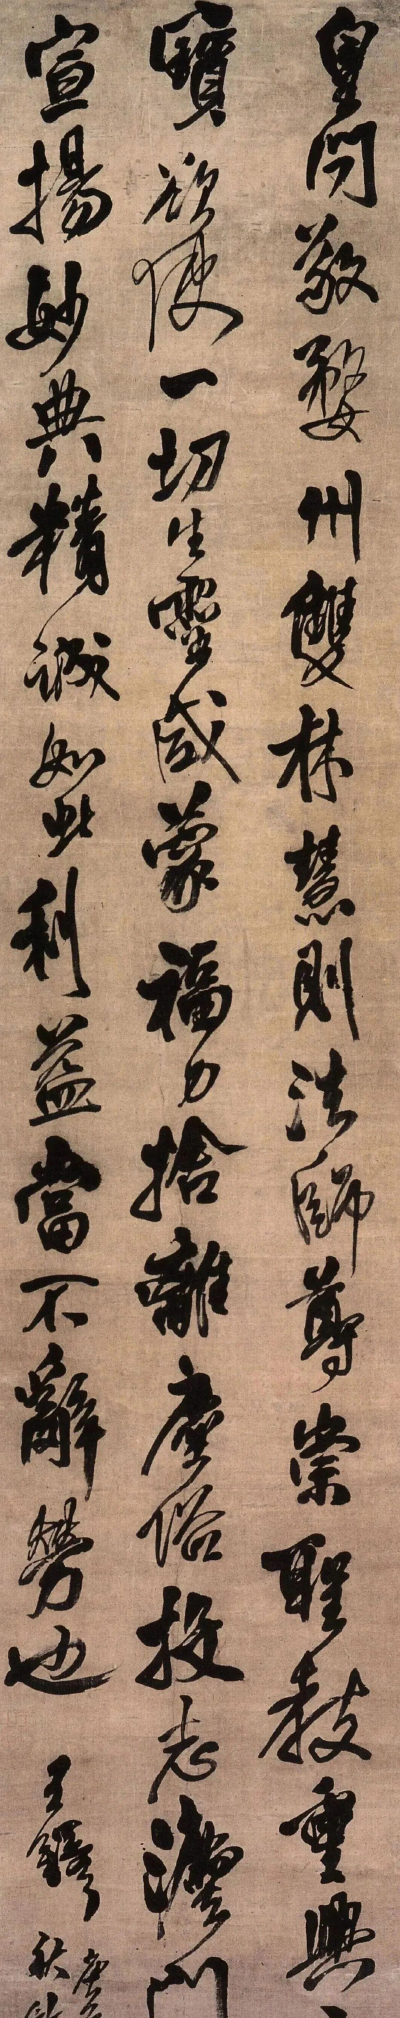 皇問敬婺州雙林慧則法師尊崇聖教重興
寶欲使一切生靈咸蒙福力捨離塵俗投志法門
宣揚妙典精誠如此利益當不辭勞也
王鐸
庚
秋